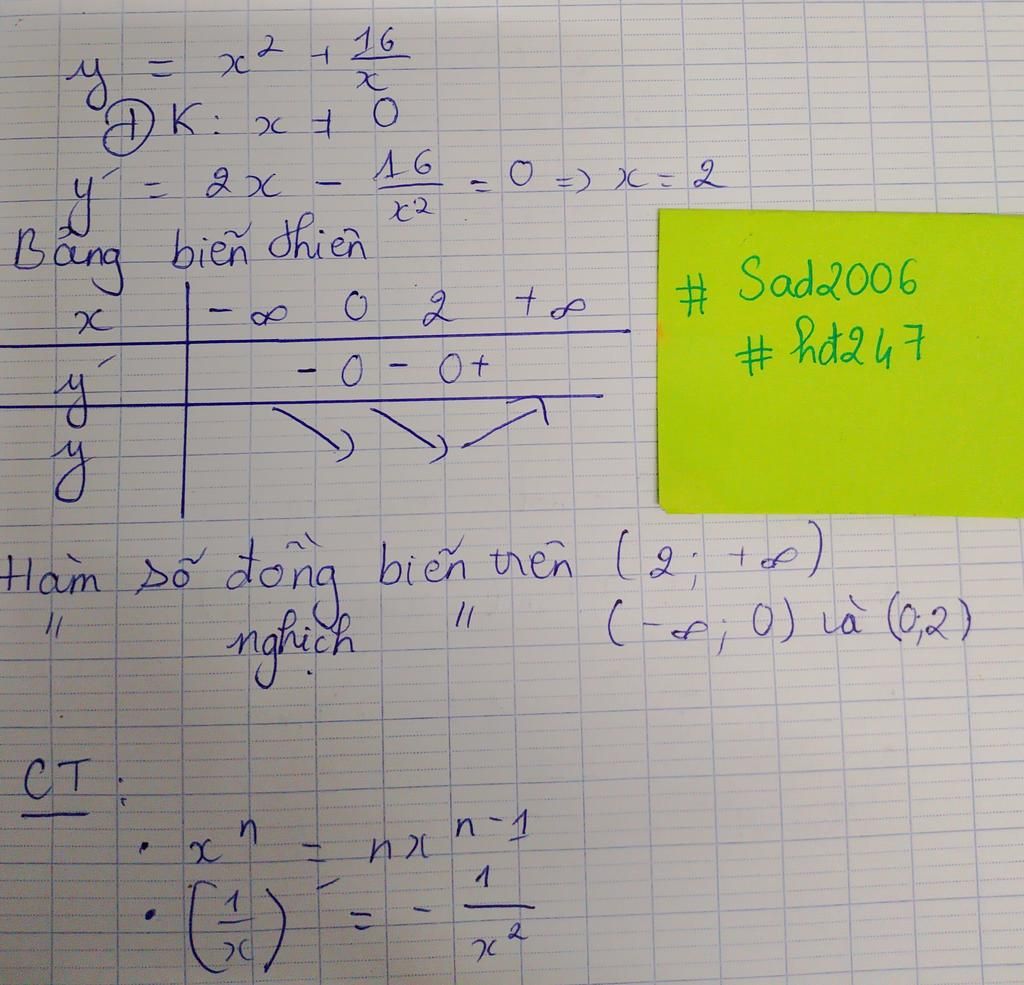 y = x² + 16/x
ĐK: x ≠ 0
y' = 2x - 16/x² = 0 => x = 2
Bảng biến thiên
x -∞ 0 2 +∞
y' - 0 - 0 +
y ↘ ↘ ↗
# Sad2006
# hđ247
Hàm số đồng biến trên (2; +∞)
" nghịch " (-∞; 0) và (0;2)
CT:
• xⁿ = nxⁿ⁻¹
• (1/x)' = - 1/x²